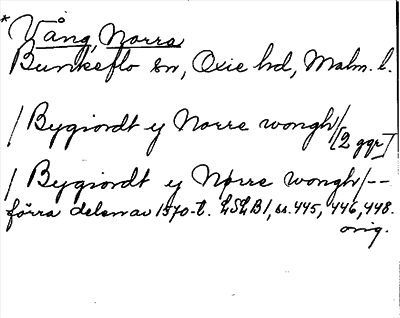 * Vång, Norra
Bunkeflo sn, Oxie hd, Malm. l.
/ Bygiordt ey Norre wongh / [2 ggr]
/ Bygiordt ey Nørre wongh / --
förra delen av 1570-t. LSLB1, s. 445, 446, 448.
orig.